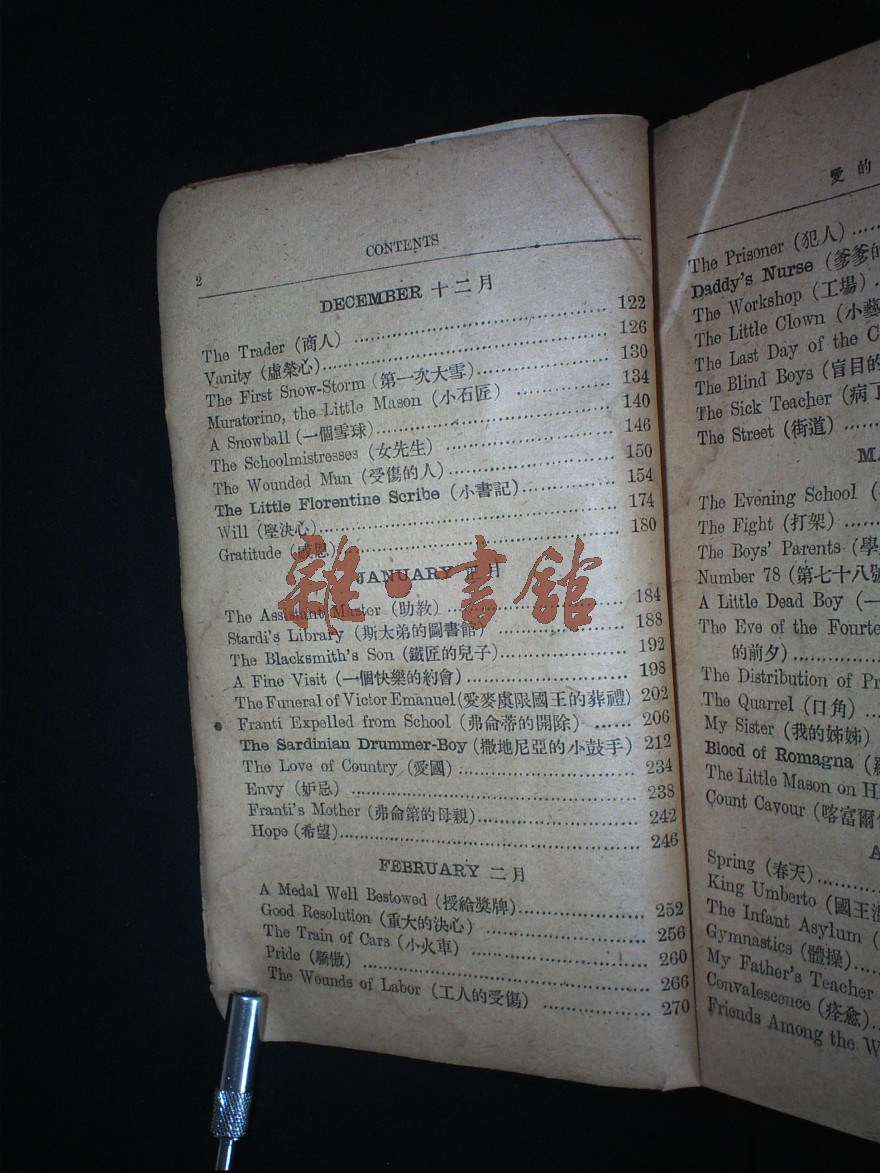 2
CONTENTS
DECEMBER 十二月
The Trader (商人) 122
Vanity (虛榮心) 126
The First Snow-Storm (第一次大雪) 130
Muratorino, the Little Mason (小石匠) 134
A Snowball (一個雪球) 140
The Schoolmistresses (女先生) 146
The Wounded Man (受傷的人) 150
The Little Florentine Scribe (小書記) 154
Will (堅決心) 174
Gratitude (感恩) 180
JANUARY 正月
The Assistant Master (助教) 184
Stardi's Library (斯太弟的圖書館) 188
The Blacksmith's Son (鐵匠的兒子) 192
A Fine Visit (一個快樂的約會) 198
The Funeral of Victor Emanuel (愛麥虞限國王的葬禮) 202
Franti Expelled from School (弗侖蒂的開除) 206
The Sardinian Drummer-Boy (撒地尼亞的小鼓手) 212
The Love of Country (愛國) 234
Envy (妒忌) 238
Franti's Mother (弗侖第的母親) 242
Hope (希望) 246
FEBRUARY 二月
A Medal Well Bestowed (授給獎牌) 252
Good Resolution (重大的決心) 256
The Train of Cars (小火車) 260
Pride (驕傲) 266
The Wounds of Labor (工人的受傷) 270
雜·書館
愛的
The Prisoner (犯人)
Daddy's Nurse (爹爹的
The Workshop (工場)
The Little Clown (小藝
The Last Day of the C
The Blind Boys (盲目的
The Sick Teacher (病
The Street (街道)
MA
The Evening School (
The Fight (打架)
The Boys' Parents (學
Number 78 (第七十八號
A Little Dead Boy (一
The Eve of the Fourte
的前夕)
The Distribution of Pr
The Quarrel (口角)
My Sister (我的姊姊)
Blood of Romagna (
The Little Mason on H
Count Cavour (喀富爾
A
Spring (春天)
King Umberto (國王
The Infant Asylum (
Gymnastics (體操)
My Father's Teacher
Convalescence (痊愈)
Friends Among the W